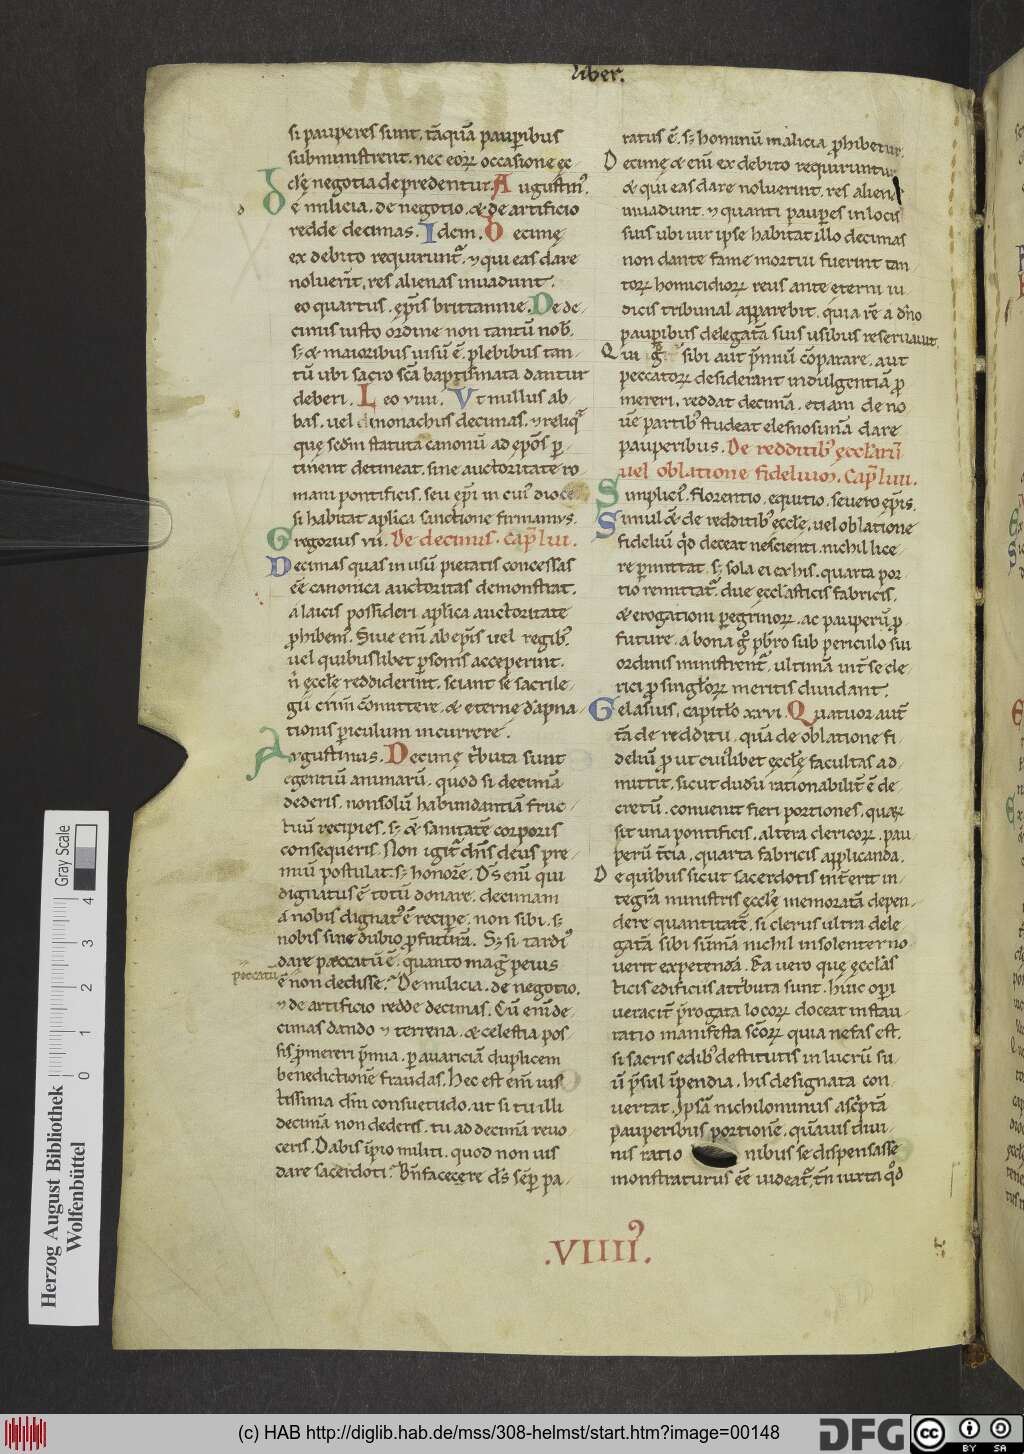 Liber.
si pauperes sunt. tāquā paupibus
subministrent. nec eoꝝ occasione ęc
clę negotia depredentur. Augustin⁹.
De milicia. de negotio. & de artificio
redde decimas. Idem. Decimę
ex debito requirunt᷑. ⁊ qui eas dare
noluerīt. res alienas inuadunt.
Leo quartus. ep̄is brittannie. De de
cimis iusto ordine non tantū nob̄.
s; & maioribus uisū ē. plebibus tan
tū ubi sacro sc̄a baptismata dantur
deberi. Leo viiii. Vt nullus ab
bas. uel monachus decimas. ⁊ reliq᷑
quę sc̄dm statuta canonū ad ep̄os p̱
tinent detineat. sine auctoritate ro
mani pontificis. seu ep̄i in cui⁹ dioce
si habitat aplica sanctione firmam⁹.
Gregorius vii. De decimis. Cap̄ lii.
Decimas quas in usū pietatis concessas
eē canonica auctoritas demonstrat.
a laicis possideri. aplica auctoritate
p̱hibem⁹. Siue enī ab ep̄is uel regib⁹.
uel quibuslibet p̱sonis acceperint.
n̄ ęccłe reddiderint. sciant se sacrile
gii crim̄ cōmittere. & eterne dāpna
tionis p̱iculum incurrere.
Augustinus. Decimę t̄buta sunt
egentiū animarū. quod si decimā
dederis. non solū habundantiā fruc
tuū recipies. s; & sanitatē corporis
consequeris. Non igit᷑ dn̄s deus pre
miū postulat. s; honorē. Ds enī qui
dignatus ē totū donare. decimam
a nobis dignat᷑ ē recipe. non sibi. s;
nobis sine dubio p̱futurā. S; si tardi⁹
dare peccatū ē. quanto mag̃ peius
peccatū
ē non dedisse? De milicia. de negotio.
⁊ de artificio redde decimas. Cū enī de
cimas dando ⁊ terrena. & celestia pos
sis p̱mereri p̄mia. p̱ auariciā duplicem
benedictionē fraudas. Hec est enī ius
tissima dn̄i consuetudo. ut si tu illi
decimā non dederis. tu ad decimā reuo
ceris. Dabis īpio militi. quod non uis
dare sacerdoti. Bn̄facere ds̄ semp̱ pa
ratus ē. s; hominū malicia p̱hibetur.
Decimę & enī ex debito requiruntur.
& qui eas dare noluerint. res alienas
inuadunt. ⁊ quanti paup̱es in locis
suis ubi uir ipse habitat illo decimas
non dante fame mortui fuerint tan
toꝝ homicidioꝝ reus ante eterni iu
dicis tribunal apparebit. quia rē a dn̄o
paupibus delegatā suis usibus reseruauit.
Qui sibi aut p̄miū cōparare. aut
peccatoꝝ desiderant indulgentiā p̱
mereri. reddat decimā. etiam de no
uē partib⁹ studeat elesmosinā dare
pauperibus. De redditib⁹ ęccl̄arū
uel oblatione fideliuɱ. Cap̄ liii.
Simplici⁹. florentio. equitio. seuero ep̄is.
Simul & de redditib⁹ eccłe. uel oblatione
fideliū q̄d deceat nescienti. nichil lice
re p̱mittat. s; sola ei ex his quarta por
tio remittat᷑. due ęcclasticis fabricis.
& erogationi p̱egrinoꝝ. ac pauperū p̱
future. a bona g⁰ pb̄ro sub periculo sui
ordinis ministrent᷑. ultimā int̄ se cle
rici p̱ singłoꝝ meritis diuidant.
Gelasius. capitło xxvi. Quatuor aut̄
tā de redditu. quā de oblatione fi
deliū p̱ut cui⁹libet eccłe facultas ad
mittit. sicut dudū rationabilit̄ ē de
cretū. conuenit fieri portiones. quaꝝ
sit una pontificis. altera clericoꝝ. pau
perū t̄cia. quarta fabricis applicanda.
De quibus sicut sacerdotis int̄erit in
tegrā ministris eccłe memoratā depen
dere quantitatē. si clerus ultra dele
gatā sibi sūmā nichil insolenter no
uerit expetendā. Ea uero que ęccłas
ticis edificiis attributa sunt. huic operi
ueracit̄ p̄rogata locoꝝ doceat instau
ratio manifesta sc̄oꝝ quia nefas est.
si sacris edib⁹ destitutis in lucrū su
ū p̄sul īpendia. his designata con
uertat. Ipsā nichilominus asc̄ptā
pauperibus portionē. quāuis diui
nis ratio nibus se dispensasse
monstraturus eē uideat᷑. tn̄ iuxta q̄d
.VIIII⁹.
Herzog August Bibliothek
Wolfenbüttel
Gray Scale
0 1 2 3 4
(c) HAB http://diglib.hab.de/mss/308-helmst/start.htm?image=00148
DFG
cc BY SA